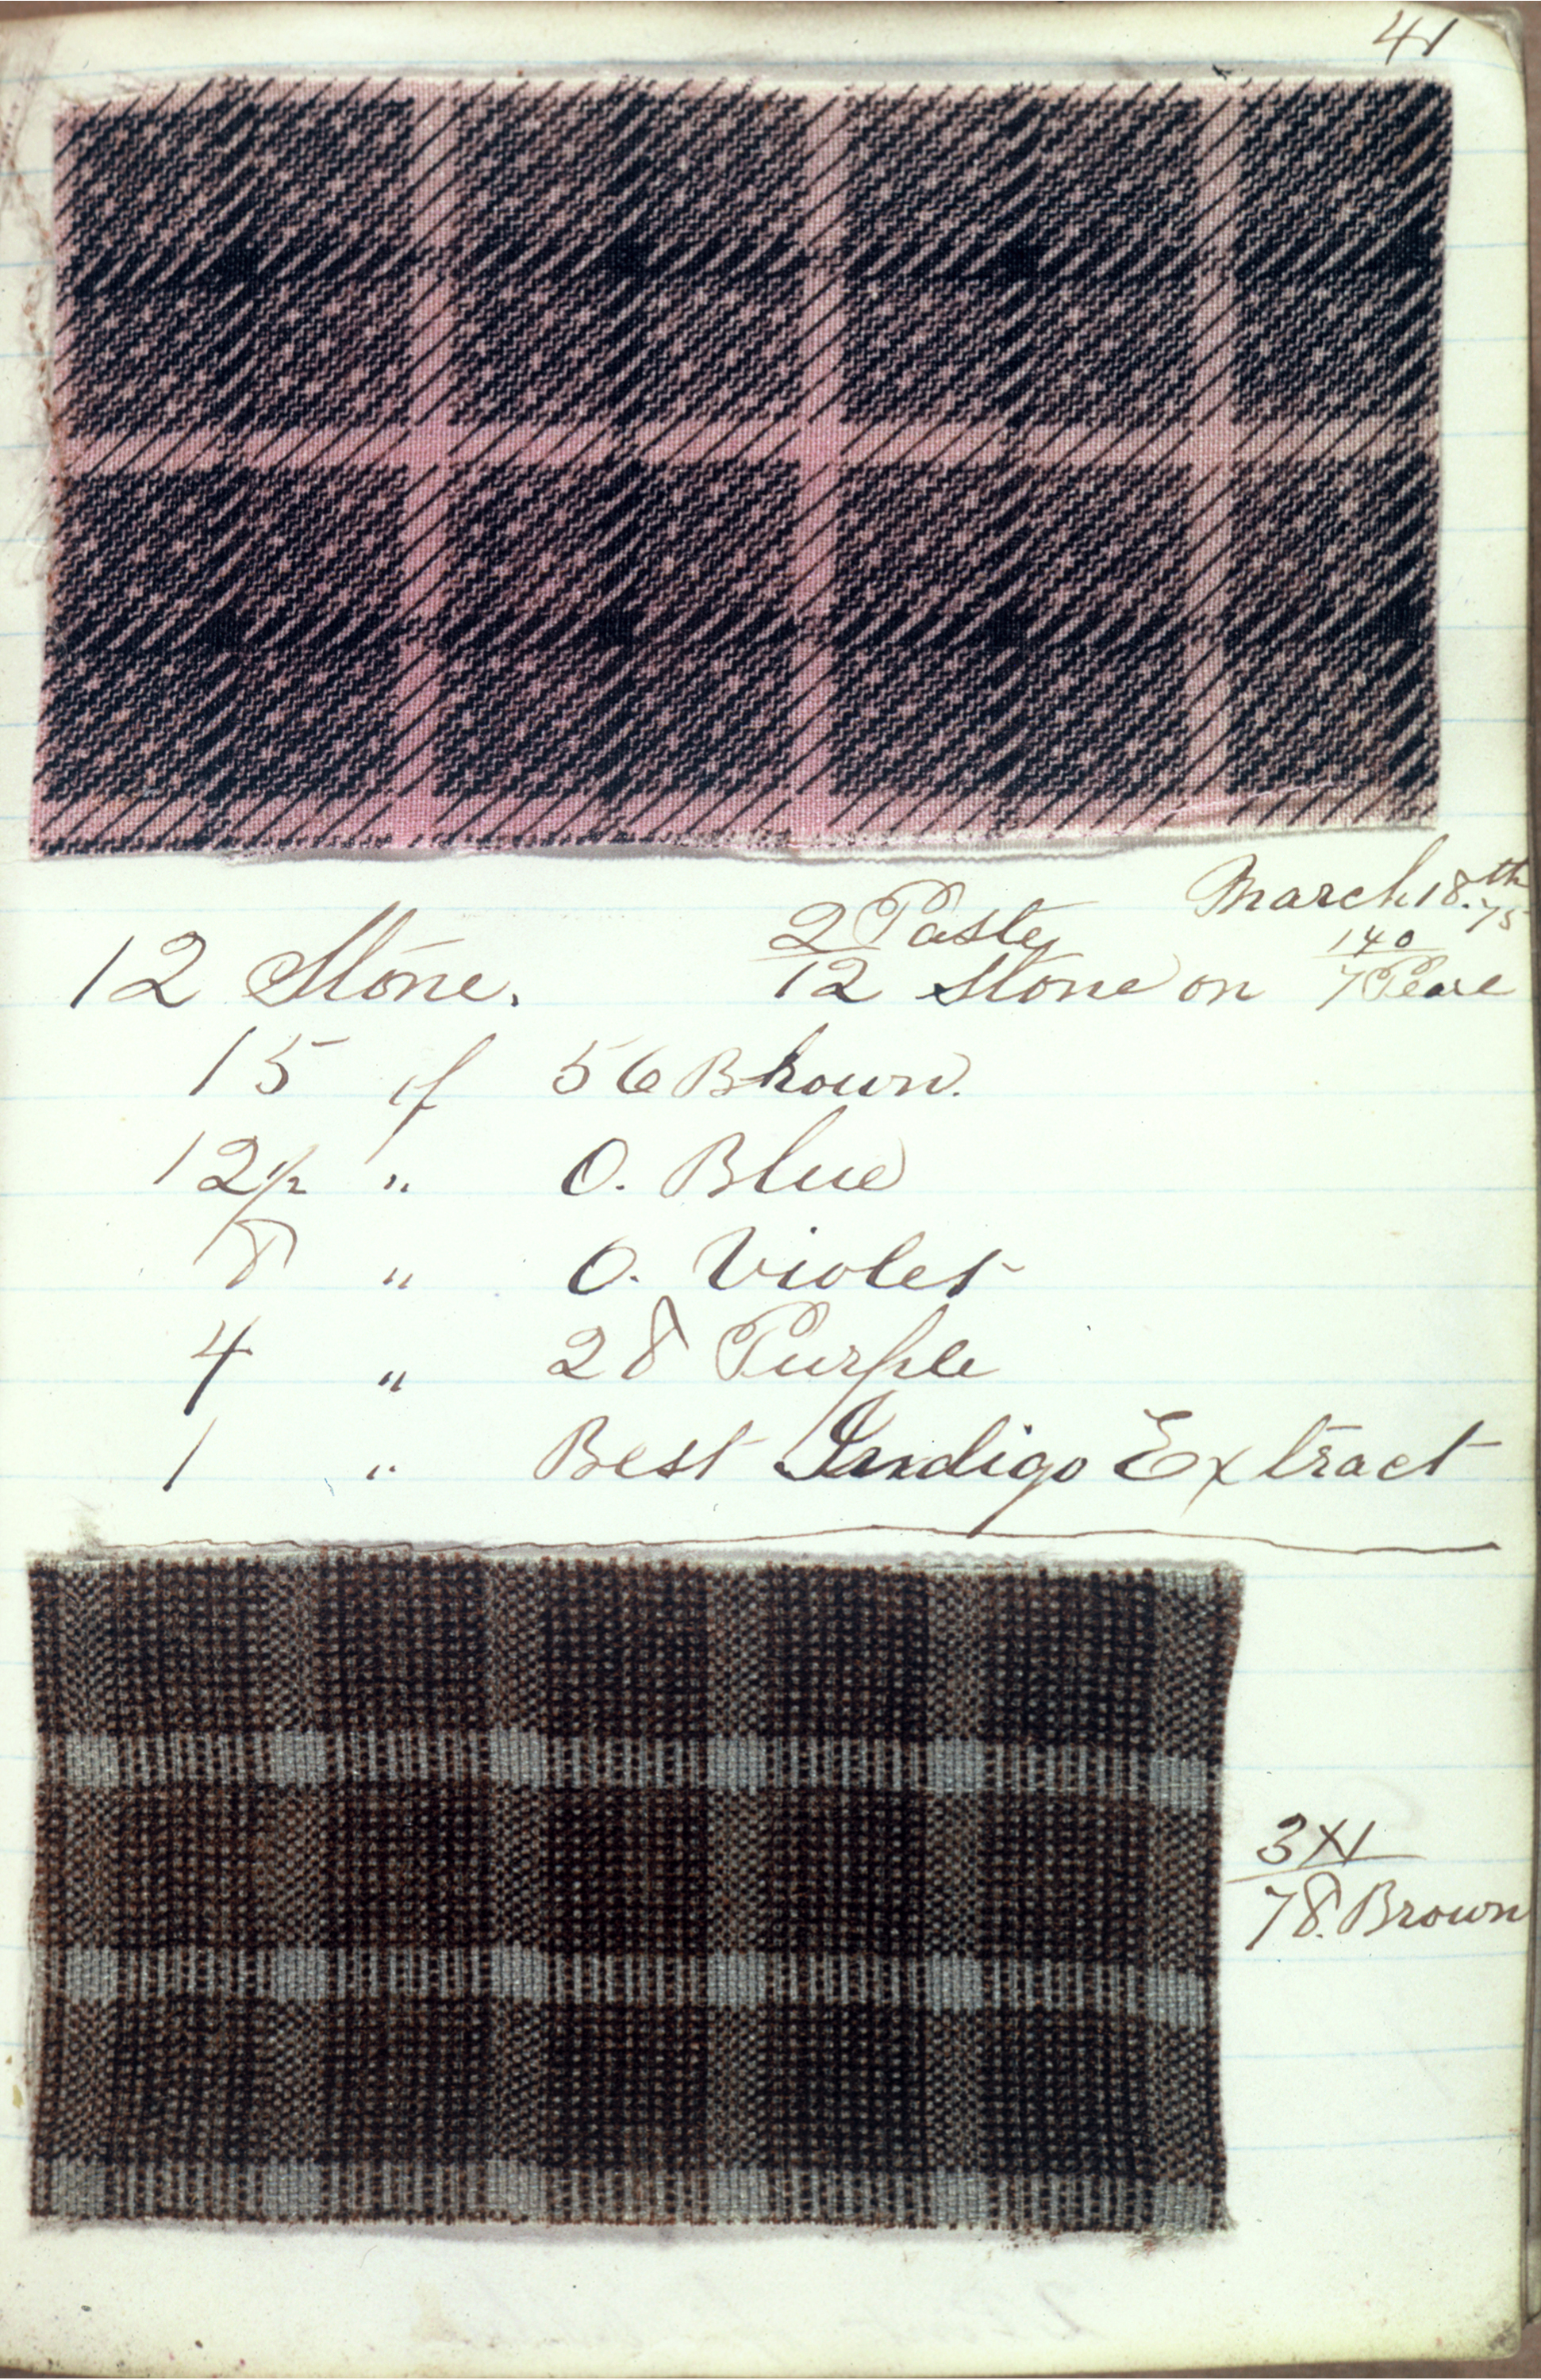 41
March 18.th 75
2 Paste 140
12 Stone. 12 Stone on 7 Pearl
15 of 56 Brown.
12½ " O. Blue
8 " O. Violet
4 " 28 Purple
1 " Best Indigo Extract
3 X 1
78. Brown